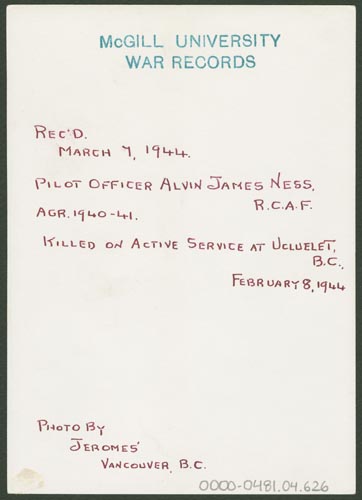 McGILL UNIVERSITY
WAR RECORDS
REC'D.
MARCH 7, 1944.
PILOT OFFICER ALVIN JAMES NESS,
R.C.A.F.
AGR. 1940-41.
KILLED ON ACTIVE SERVICE AT UCLUELET,
B.C.,
FEBRUARY 8, 1944
PHOTO BY
JEROMES'
VANCOUVER, B.C.
0000-0481.04.626